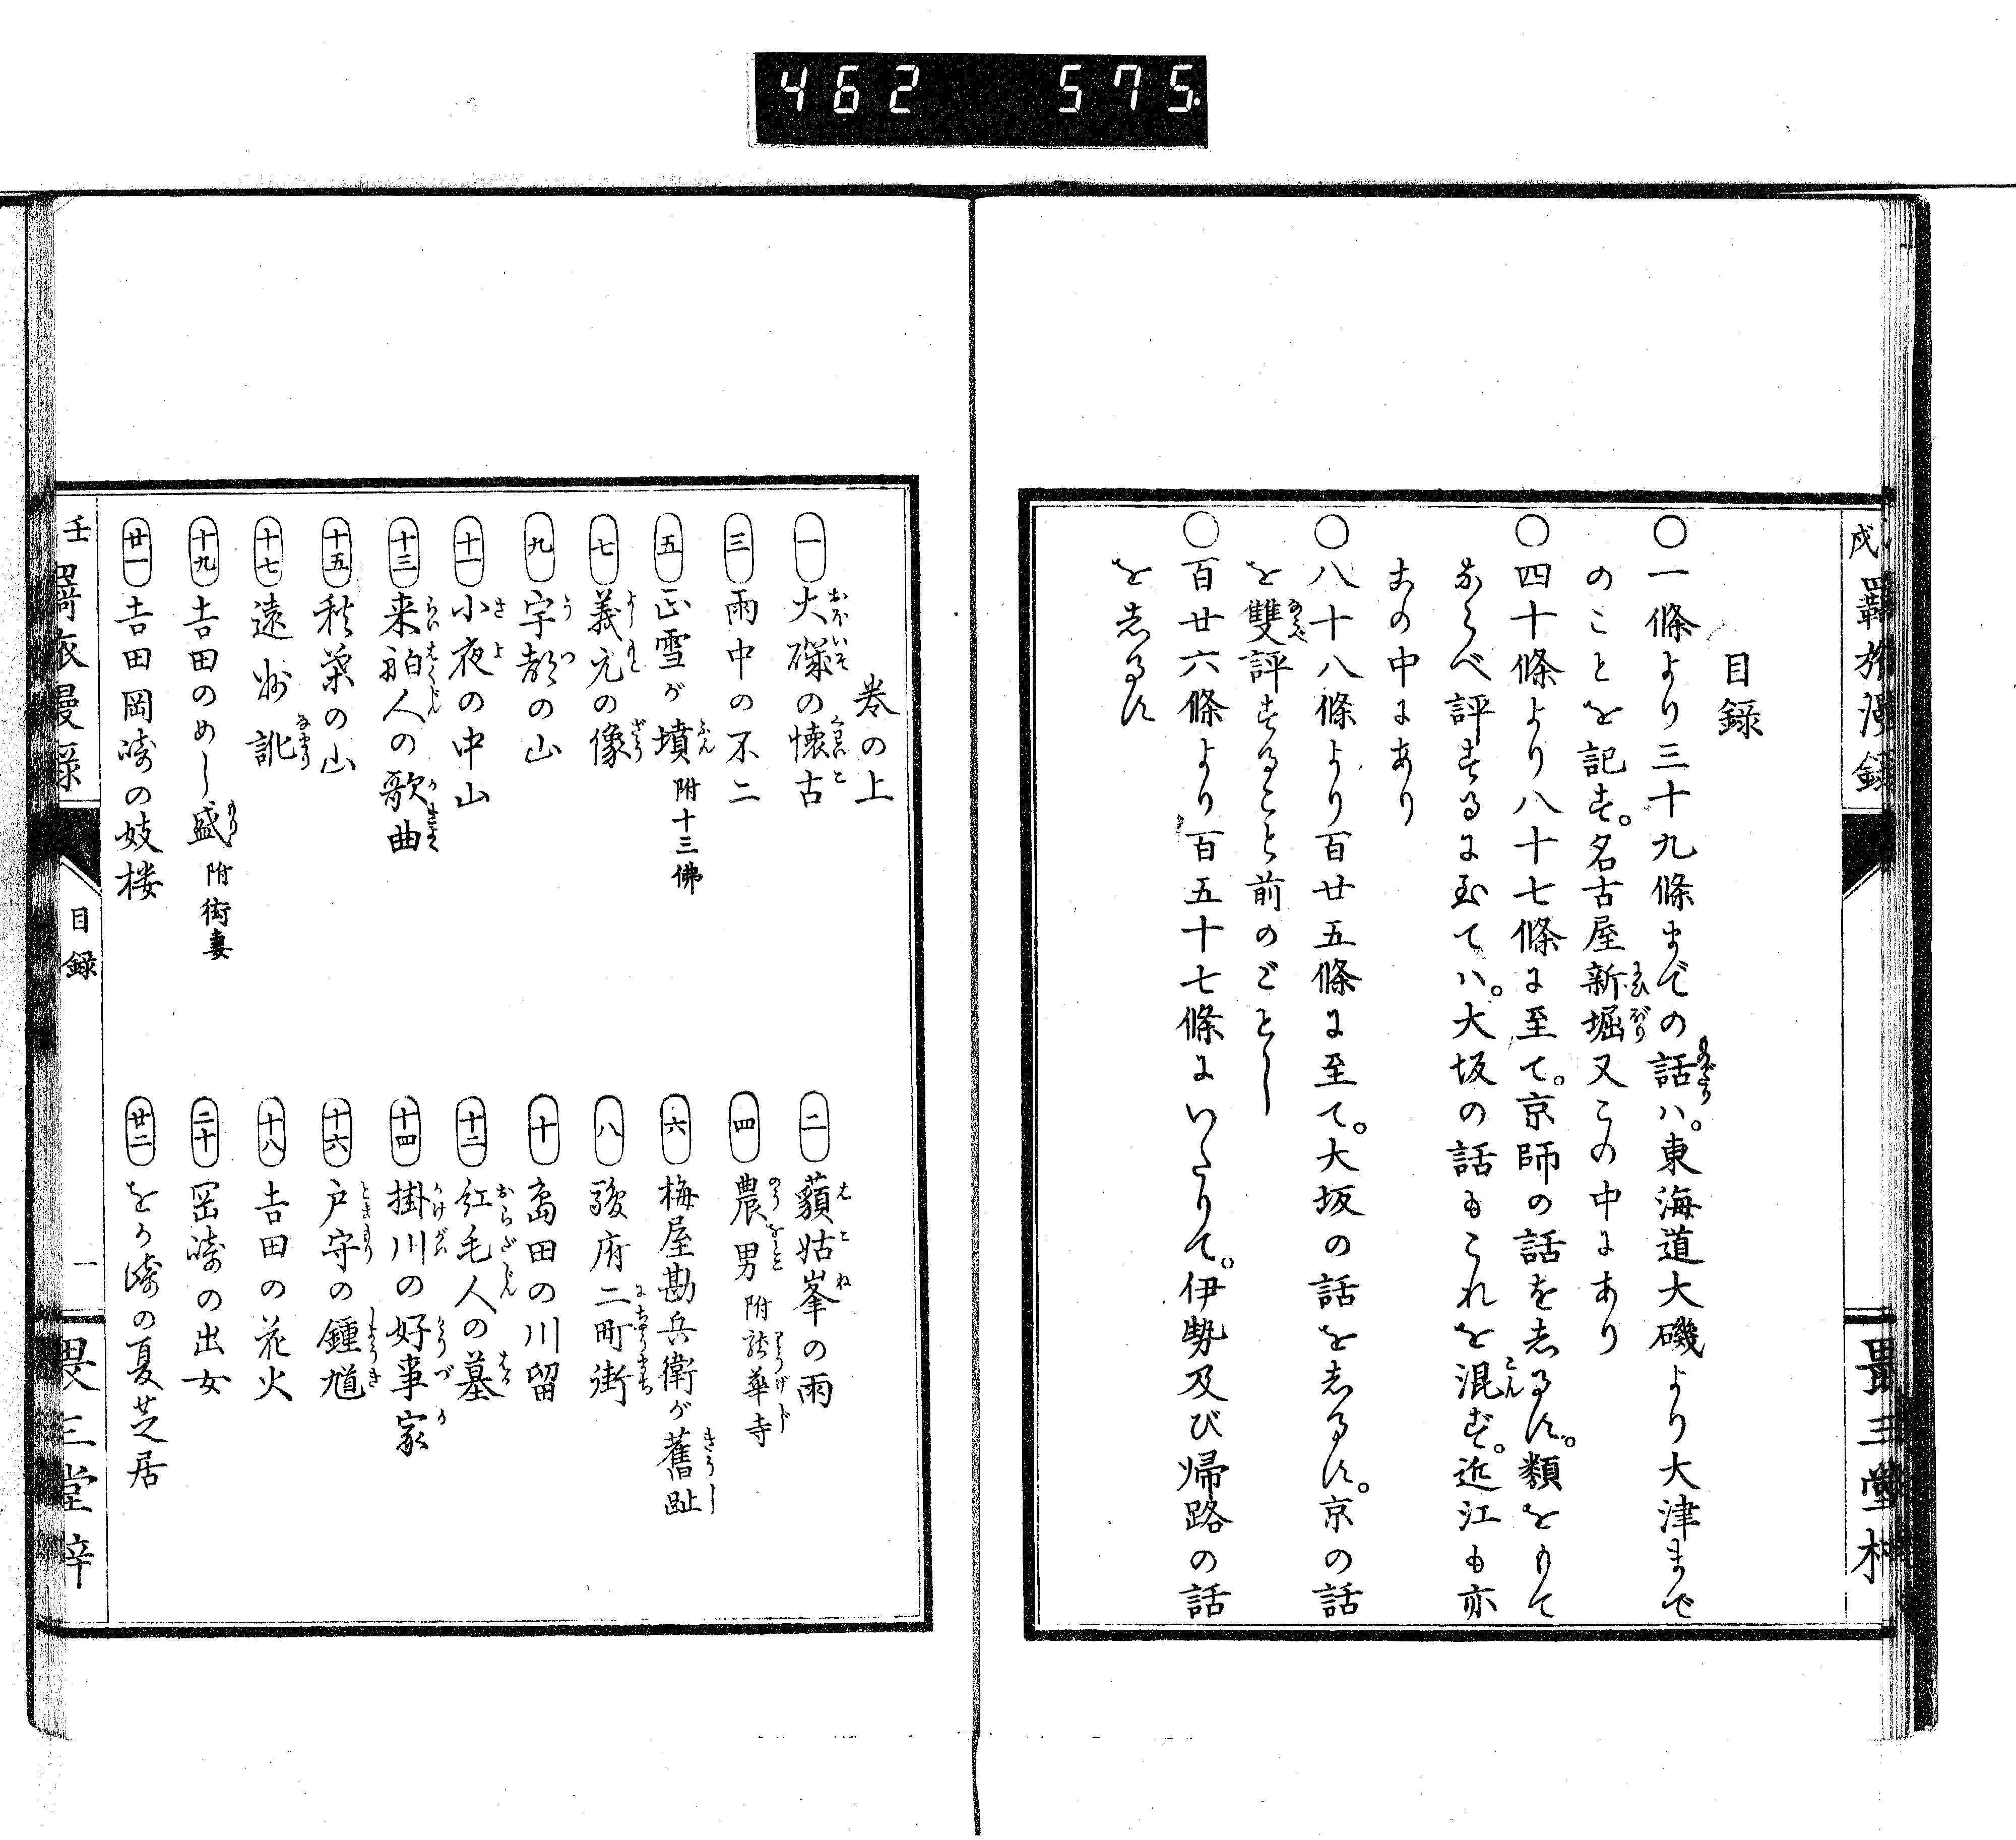 462 575
目録
○一條より三十九條までの話ハ。東海道大磯より大津まで
のことを記す。名古屋新堀又この中にあり
○四十條より八十七條に至て。京師の話を志るす。類をもて
ならべ評するに至てハ。大坂の話もこれを混ず。近江も亦
この中にあり
○八十八條より百廿五條に至て。大坂の話を志るす。京の話
を雙評すること前のごとし
○百廿六條より百五十七條にいたりて。伊勢及び帰路の話
を志るす
羇旅漫録
畏三堂
巻の上
一 大礒の懐古
二 藐姑峯の雨
三 雨中の不二
四 農男 附龍華寺
五 正雪が墳 附十三佛
六 梅屋勘兵衛が舊趾
七 義元の像
八 駿府二町街
九 宇都の山
十 島田の川留
十一 小夜の中山
十二 紅毛人の墓
十三 来舶人の歌曲
十四 掛川の好事家
十五 秋葉の山
十六 戸守の鍾馗
十七 遠州訛
十八 吉田の花火
十九 吉田のめし盛 附街妻
二十 岡崎の出女
廿一 吉田岡崎の妓楼
廿二 をか崎の夏芝居
壬
目録
一
畏三堂梓